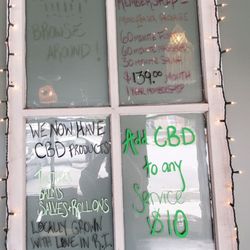 BROWSE
AROUND!
MEMBERSHIPS
60 minute
60 minute
30 minute
$139.00 /MONTH
1 YEAR MEMBERSHIP
WE NOW HAVE
CBD PRODUCTS
BALMS
SALVES + ROLLONS
LOCALLY GROWN
WITH LOVE IN R.I.
Add CBD
to any
Service
$10